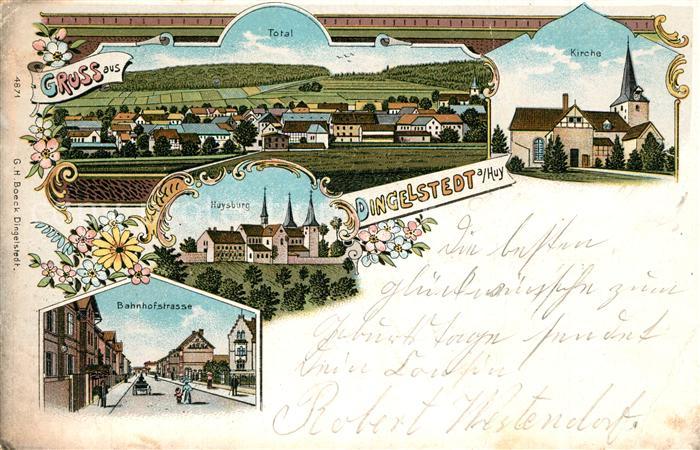 Total
Kirche
GRUSS aus
Huysburg
DINGELSTEDT a/Huy
Bahnhofstrasse
4871
G. H. Boeck, Dingelstedt.
Die besten
glückwünsche zum
Geburtstage sendet
Dein Cousin
Robert Westendorf.